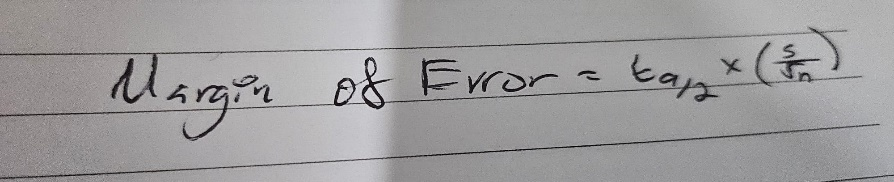 Margin of Error = ta/2 × (s/√n)